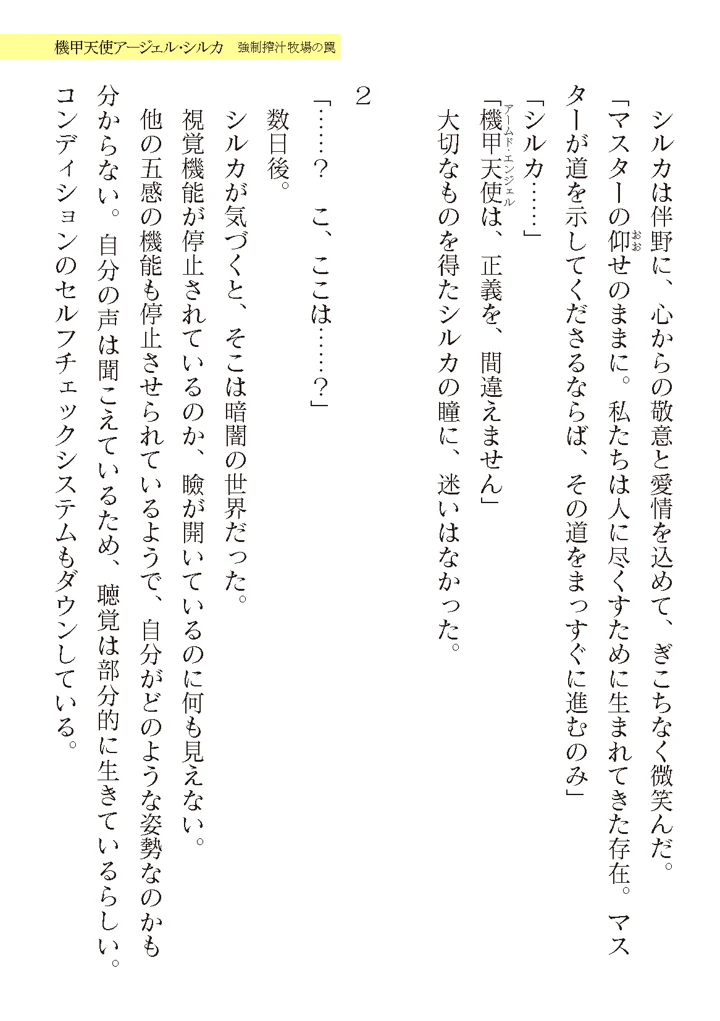 機甲天使アージェル・シルカ　強制搾汁牧場の罠
シルカは伴野に、心からの敬意と愛情を込めて、ぎこちなく微笑んだ。
「マスターの仰せのままに。私たちは人に尽くすために生まれてきた存在。マス
ターが道を示してくださるならば、その道をまっすぐに進むのみ」
「シルカ……」
「機甲天使は、正義を、間違えません」
大切なものを得たシルカの瞳に、迷いはなかった。
2
「……？　こ、ここは……？」
数日後。
シルカが気づくと、そこは暗闇の世界だった。
視覚機能が停止されているのか、瞼が開いているのに何も見えない。
他の五感の機能も停止させられているようで、自分がどのような姿勢なのかも
分からない。自分の声は聞こえているため、聴覚は部分的に生きているらしい。
コンディションのセルフチェックシステムもダウンしている。
おお
アームド・エンジェル